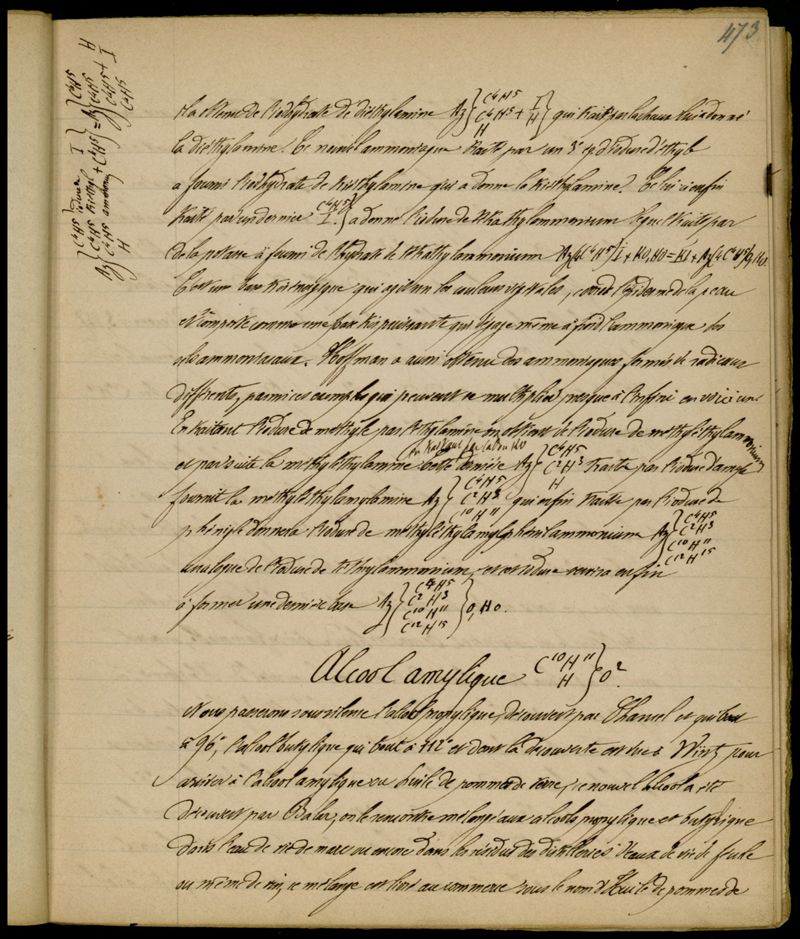 473
C4H5
Az C4H5 + I
H H
qui traité par la chaux
la diéthylamine. Ce nouvel ammoniaque traité par un 3e eq d'iodure d'éthyle
a fourni l'iodhydrate de triéthylamine qui a donné la triéthylamine. Celui ci enfin
traité par un dernier C4H5 I a donné l'iodure de tétréthylammonium lequel traité par
de la potasse a fourni de l'hydrate de tétréthylammonium Az(4C4H5)I + KO,HO = KI + Az(4C4H5)O,HO.
C'est une base très énergique qui agit sur les couleurs végétales, corrode l'épiderme de la peau
et se comporte comme une base très puissante qui déplace même à froid l'ammoniaque des
sels ammoniacaux. Hoffman a aussi obtenu des ammoniaques formés de radicaux
différents, parmi ces exemples qui peuvent se multiplier presque à l'infini en voici un.
En traitant l'iodure de méthyle par l'éthylamine on obtient de l'iodure de méthyléthylammonium
et par suite la méthyléthylamine cette dernière Az C4H5 C2H3 H traitée par l'iodure d'amyle
fournit la méthyléthylamylamine Az C4H5 C2H3 C10H11 qui enfin traitée par l'iodure de
phényle donnera l'iodure de méthyléthylamylphénylammonium Az C4H5 C2H3 C10H11 C12H15
analogue de l'iodure de tétréthylammonium, et cet iodure servira enfin
à former une dernière base Az C4H5 C2H3 C10H11 C12H15 O, HO.
Alcool amylique C10H11 H O2.
Nous passerons sous silence l'alcool propylique, découvert par Chancel et qui bout
à 96°, l'alcool butylique qui bout à 112° et dont la découverte est due à Wurtz pour
arriver à l'alcool amylique ou huile de pomme de terre, ce nouvel alcool a été
découvert par Balar, on le rencontre mélangé aux alcools propylique et butylique
dans l'eau de vie de marc ou encore dans les résidus des distilleries d'eaux de vie de fécule
ou même de vin, ce mélange est livré au commerce sous le nom d'Huile de pommes de